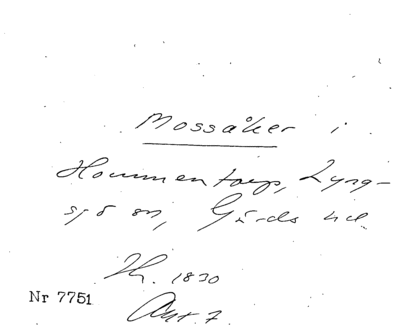 Mossåker i
Hommentorp, Lyng-
sjö sn, Gärds hd
Th. 1830
Akt. 7
Nr 7751